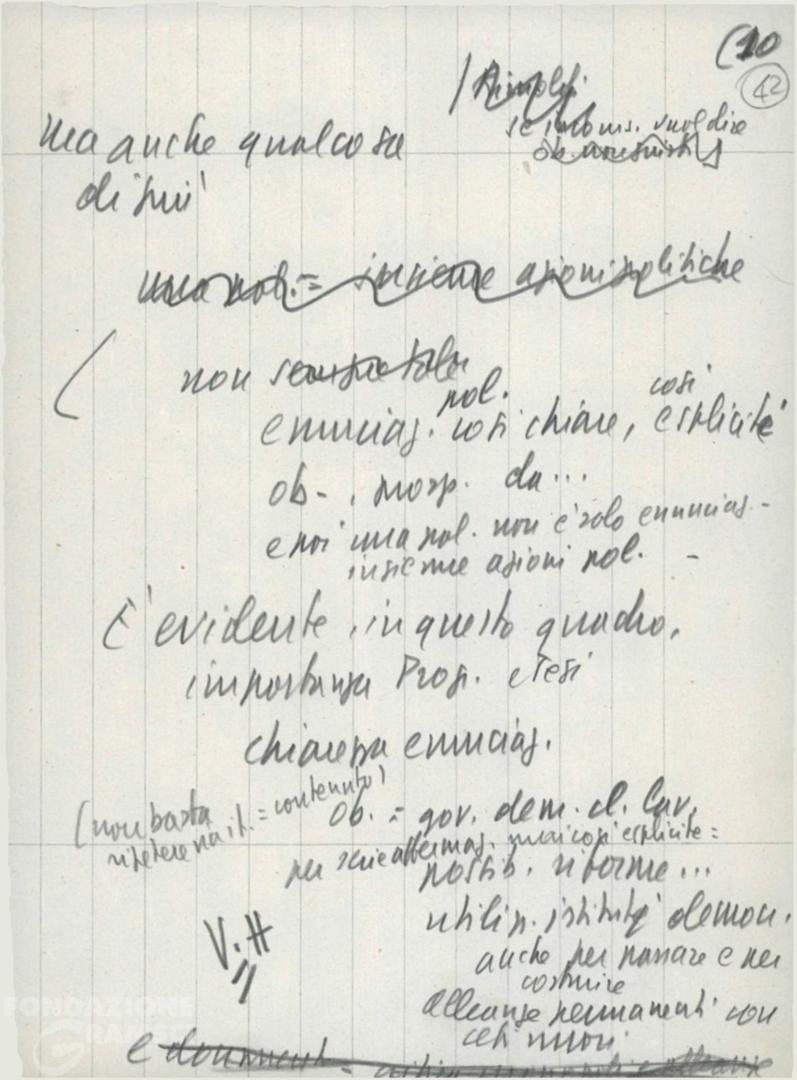 (10
42
se vuol dire
ma anche qualcosa
di più
una pol. = insieme azioni politiche
( non
pol. così
enunciaz. così chiare, esplicite
ob. , prosp. da...
e poi una pol. non è solo enunciaz. -
insieme azioni pol. -
È evidente, in questo quadro,
importanza Progr. e Tesi
chiarezza enunciaz.
(non basta
ripetere = contenuto)
ob. = gov. dem. cl. lav.
per affermaz. mai così esplicite =
possib. riforme...
utilizz. istituti democr.
anche per passare e per
costruire
alleanze permanenti con
ceti
V. H
FONDAZIONE
GRAMSCI
e